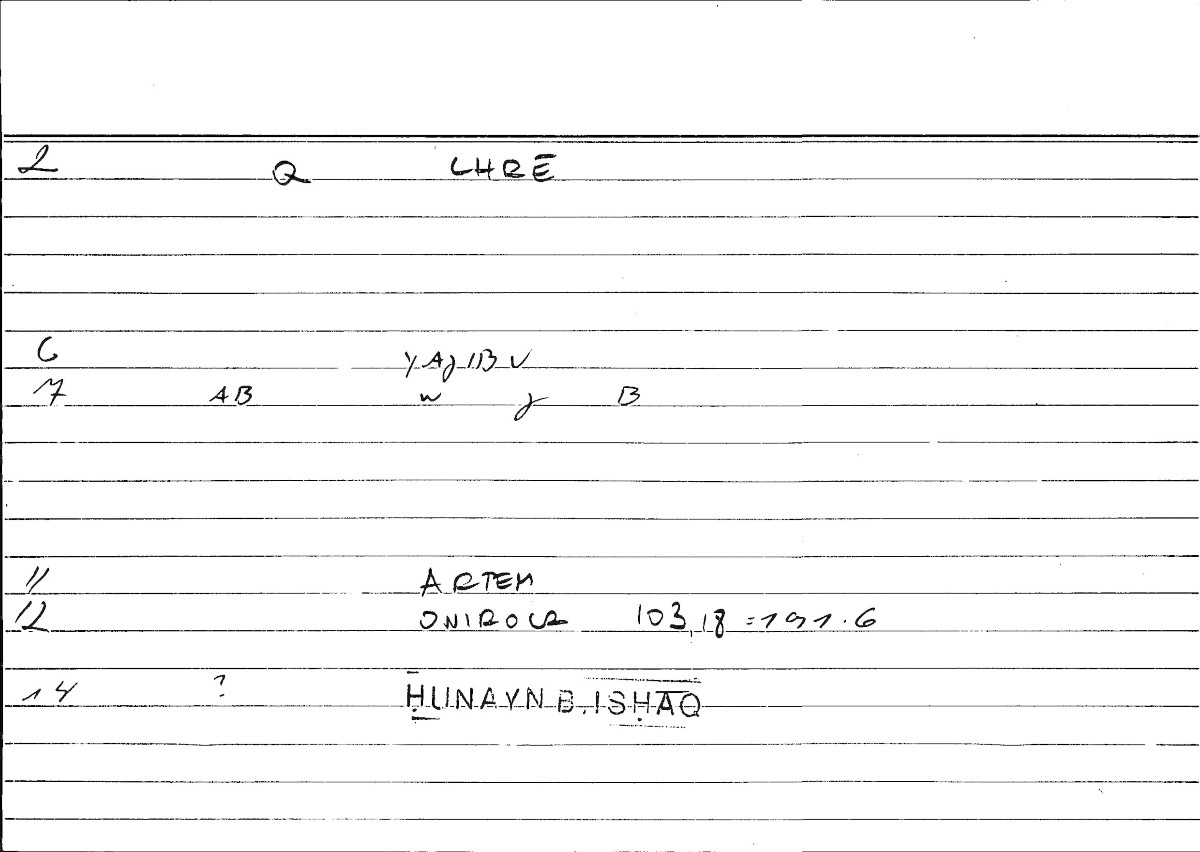 2 Q LHRĒ
6 YAJIBU
7 AB w j B
11 ARTEM
12 ONIROCR 103,18 = 191.6
14 ? ḤUNAYN B. ISḤĀQ